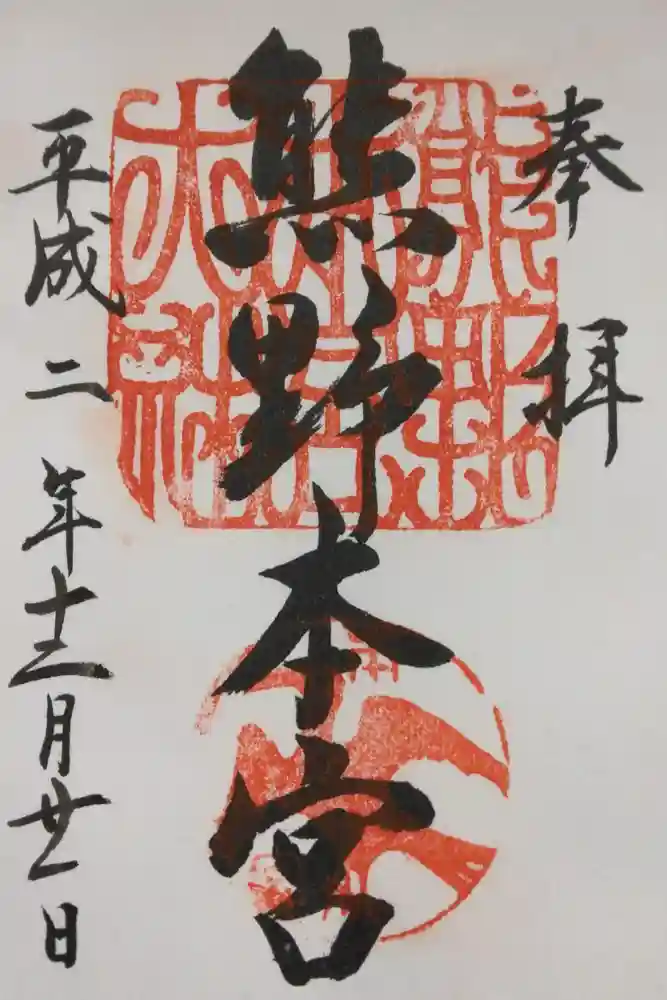 奉拝
熊野本宮
平成二年十二月廿一日
熊野
本宮
大社